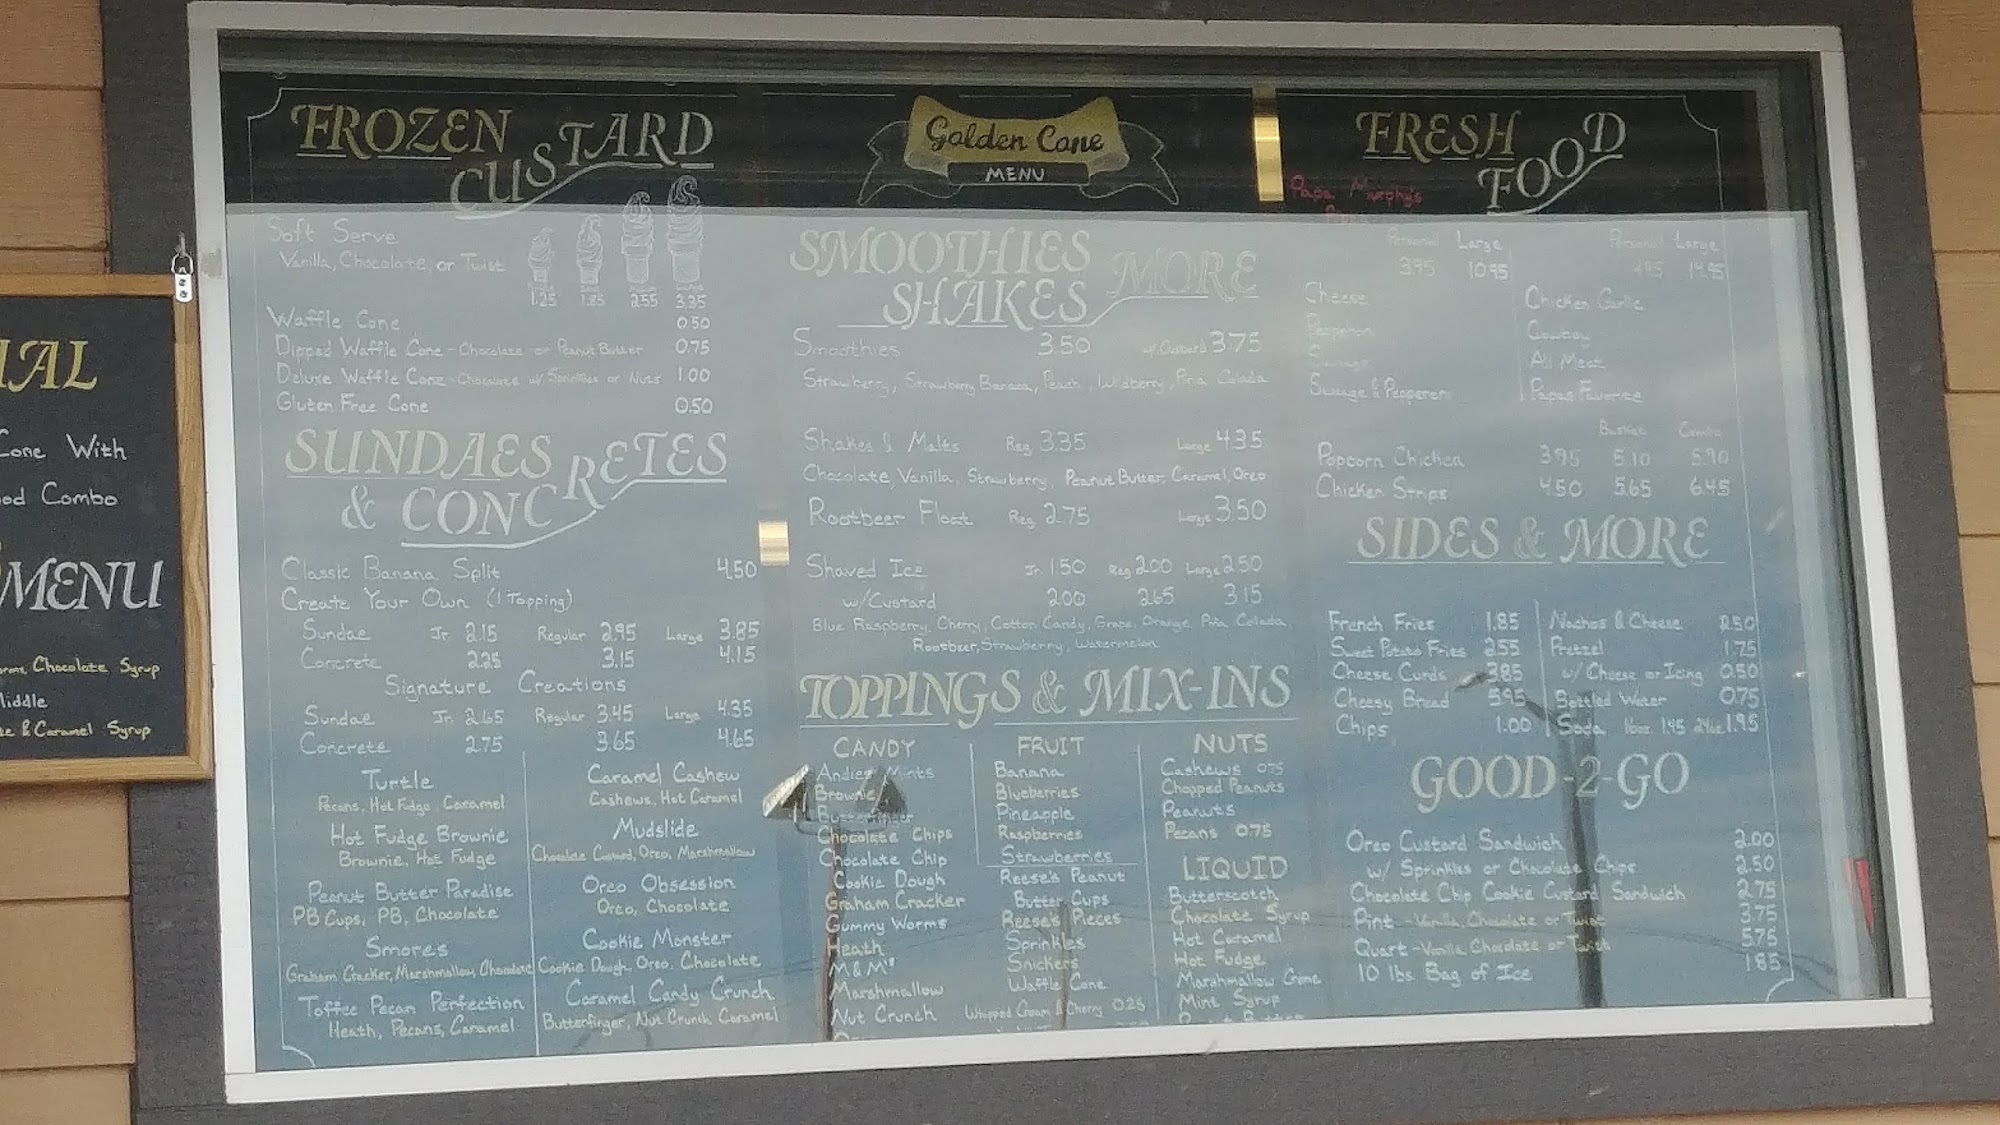 IAL
Cone With
od Combo
MENU
orms, Chocolate Syrup
Middle
te & Caramel Syrup
FROZEN
CUSTARD
Soft Serve
Vanilla, Chocolate, or Twist
1.25 1.85 2.55 3.35
Waffle Cone 0.50
Dipped Waffle Cone - Chocolate or Peanut Butter 0.75
Deluxe Waffle Cone - Chocolate w/ Sprinkles or Nuts 1.00
Gluten Free Cone 0.50
SUNDAES
& CONCRETES
Classic Banana Split 4.50
Create Your Own (1 Topping)
Sundae Jr. 2.15 Regular 2.95 Large 3.85
Concrete 2.25 3.15 4.15
Signature Creations
Sundae Jr. 2.65 Regular 3.45 Large 4.35
Concrete 2.75 3.65 4.65
Turtle
Pecans, Hot Fudge, Caramel
Hot Fudge Brownie
Brownie, Hot Fudge
Peanut Butter Paradise
PB Cups, PB, Chocolate
Smores
Graham Cracker, Marshmallow, Chocolate
Toffee Pecan Perfection
Heath, Pecans, Caramel
Caramel Cashew
Cashews, Hot Caramel
Mudslide
Chocolate Custard, Oreo, Marshmallow
Oreo Obsession
Oreo, Chocolate
Cookie Monster
Cookie Dough, Oreo, Chocolate
Caramel Candy Crunch
Butterfinger, Nut Crunch, Caramel
Golden Cone
MENU
SMOOTHIES
SHAKES MORE
Smoothies 3.50 w/ Custard 3.75
Strawberry, Strawberry Banana, Peach, Wildberry, Pina Colada
Shakes & Malts Reg. 3.35 Large 4.35
Chocolate, Vanilla, Strawberry, Peanut Butter, Caramel, Oreo
Rootbeer Float Reg. 2.75 Large 3.50
Shaved Ice Jr. 1.50 Reg 2.00 Large 2.50
w/Custard 2.00 2.65 3.15
Blue Raspberry, Cherry, Cotton Candy, Grape, Orange, Pina Colada,
Rootbeer, Strawberry, Watermelon
TOPPINGS & MIX-INS
CANDY
Andies Mints
Brownie
Butterfinger
Chocolate Chips
Chocolate Chip
Cookie Dough
Graham Cracker
Gummy Worms
Heath
M&M's
Marshmallow
Nut Crunch
FRUIT
Banana
Blueberries
Pineapple
Raspberries
Strawberries
Reese's Peanut
Butter Cups
Reese's Pieces
Sprinkles
Snickers
Waffle Cone
Whipped Cream & Cherry 0.25
NUTS
Cashews 0.75
Chopped Peanuts
Peanuts
Pecans 0.75
LIQUID
Butterscotch
Chocolate Syrup
Hot Caramel
Hot Fudge
Marshmallow Creme
Mint Syrup
FRESH
FOOD
Papa Murphy's
Personal Large
3.95 10.95
Cheese
Pepperoni
Sausage
Sausage & Pepperoni
Personal Large
14.95
Chicken Garlic
Cowboy
All Meat
Papas Favorite
Basket Combo
Popcorn Chicken 3.95 5.10 5.90
Chicken Strips 4.50 5.65 6.45
SIDES & MORE
French Fries 1.85
Sweet Potato Fries 2.55
Cheese Curds 3.85
Cheesy Bread 5.95
Chips 1.00
Nachos & Cheese 2.50
Pretzel 1.75
w/ Cheese or Icing 0.50
Bottled Water 0.75
Soda 16oz. 1.45 24oz. 1.95
GOOD-2-GO
Oreo Custard Sandwich 2.00
w/ Sprinkles or Chocolate Chips 2.50
Chocolate Chip Cookie Custard Sandwich 2.75
Pint - Vanilla, Chocolate or Twist 3.75
Quart - Vanilla, Chocolate or Twist 5.75
10 lbs. Bag of Ice 1.85